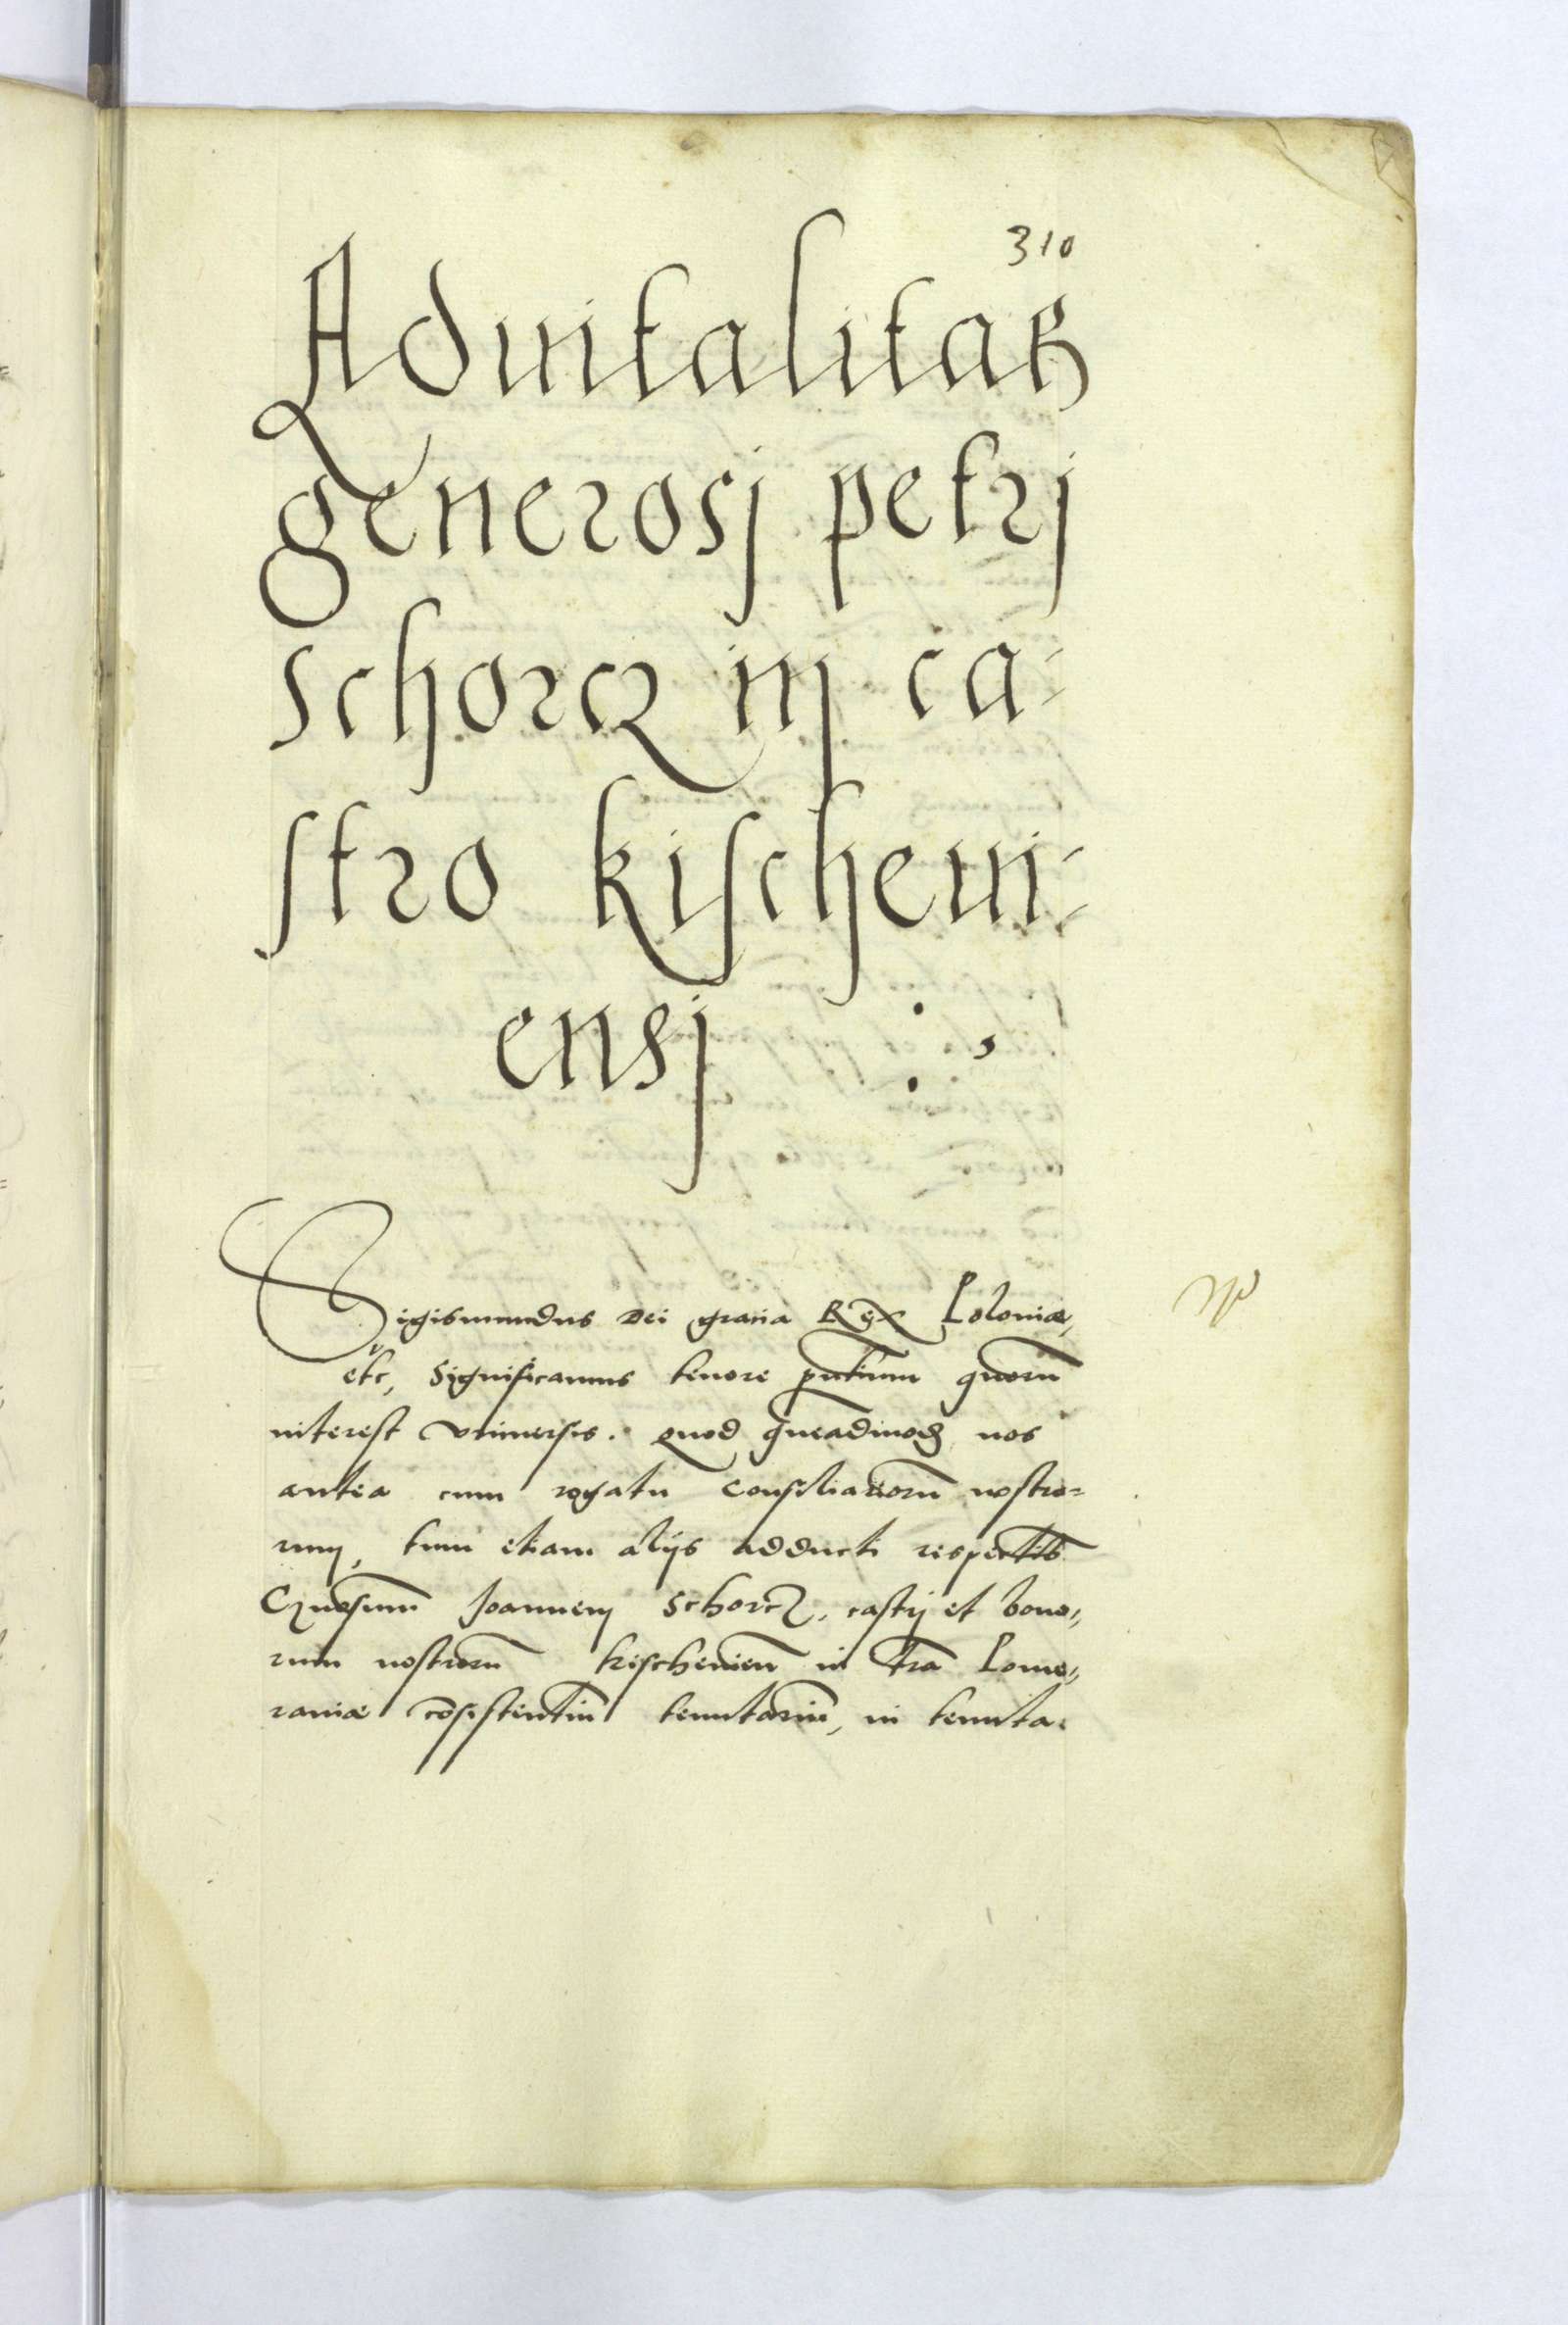 310
Aduitalitas
generosj petrj
schorcz inj ca-
stro kischeui-
ensj :,
Sigismundus Dei gratia Rex Poloniæ,
etc, Significamus tenore pntium quorū
interest vniuersis. quod quēadmodū nos
antea cum rogatu Consiliariorū nostro-
rum, tum etiam alijs adducti respectibs
Joannem Schorcz, castrj et bono-
rum nostrorū kischeuien̄ in tra Pome-
raniæ cōsistentiū tenutariū, in tenuta-